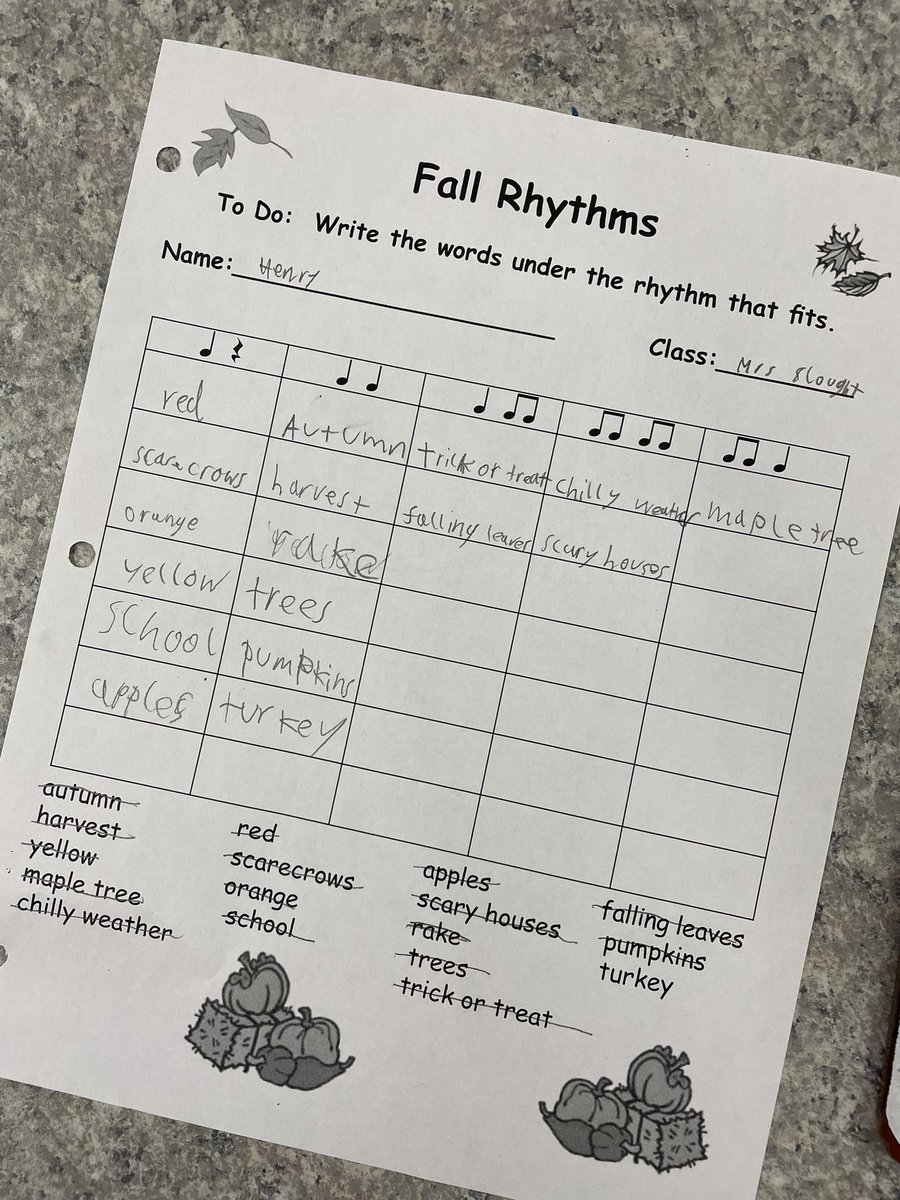 Fall Rhythms
To Do: Write the words under the rhythm that fits.
Name: Henry
Class: Mrs Slought
red Autumn trick or treat chilly weather maple tree
scarecrows harvest falling leaves scary houses
orange rake
yellow trees
school pumpkins
apples turkey
autumn red apples falling leaves
harvest scarecrows scary houses pumpkins
yellow orange rake turkey
maple tree school trees
chilly weather trick or treat